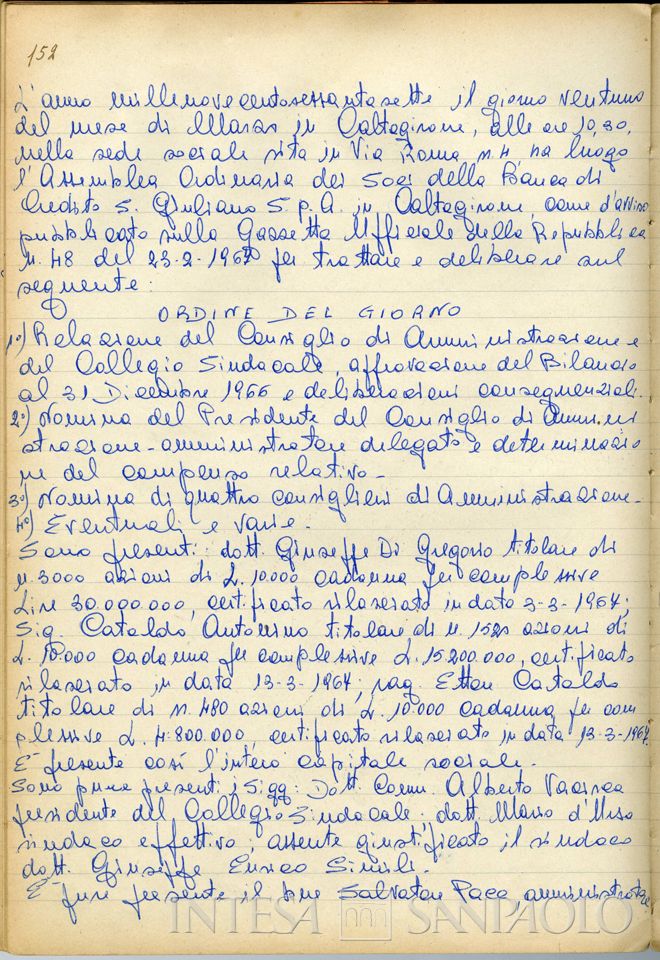 152
L'anno millenovecentosessantasette il giorno ventuno
del mese di Marzo in Caltagirone, alle ore 10,30,
nella sede sociale sita in Via Roma n. 4 ha luogo
l'Assemblea Ordinaria dei Soci della Banca di
Credito S. Giuliano S.p.A. in Caltagirone, come d'avviso
pubblicato sulla Gazzetta Ufficiale della Repubblica
n. 48 del 23-2-1967 per trattare e deliberare sul
seguente:
ORDINE DEL GIORNO
1°) Relazione del Consiglio di Amministrazione e
del Collegio Sindacale, approvazione del Bilancio
al 31 Dicembre 1966 e deliberazioni consequenziali.
2°) Nomina del Presidente del Consiglio di Ammini
strazione - amministratore delegato e determinazio
ne del compenso relativo -
3°) Nomina di quattro consiglieri di Amministrazione -
4°) Eventuali e varie -
Sono presenti: dott. Giuseppe Di Gregorio titolare di
n. 3000 azioni di L. 10.000 cadauna per complessive
Lire 30.000.000, certificato rilasciato in data 3-3-1967;
Sig. Cataldo Antonino titolare di n. 1520 azioni di
L. 10.000 cadauna per complessive L. 15.200.000, certificato
rilasciato in data 13-3-1967; rag. Ettore Cataldo
titolare di n. 480 azioni di L. 10.000 cadauna per com
plessive L. 4.800.000, certificato rilasciato in data 13-3-1967.
E' presente così l'intero capitale sociale.
Sono pure presenti i Sigg: Dott. Comm. Alberto
presidente del Collegio Sindacale; dott. Mario d'Urso
sindaco effettivo; assente giustificato il sindaco
dott. Giuseppe Enrico Simili.
E' pure presente il Salvatore Pace, amministratore
INTESA SANPAOLO